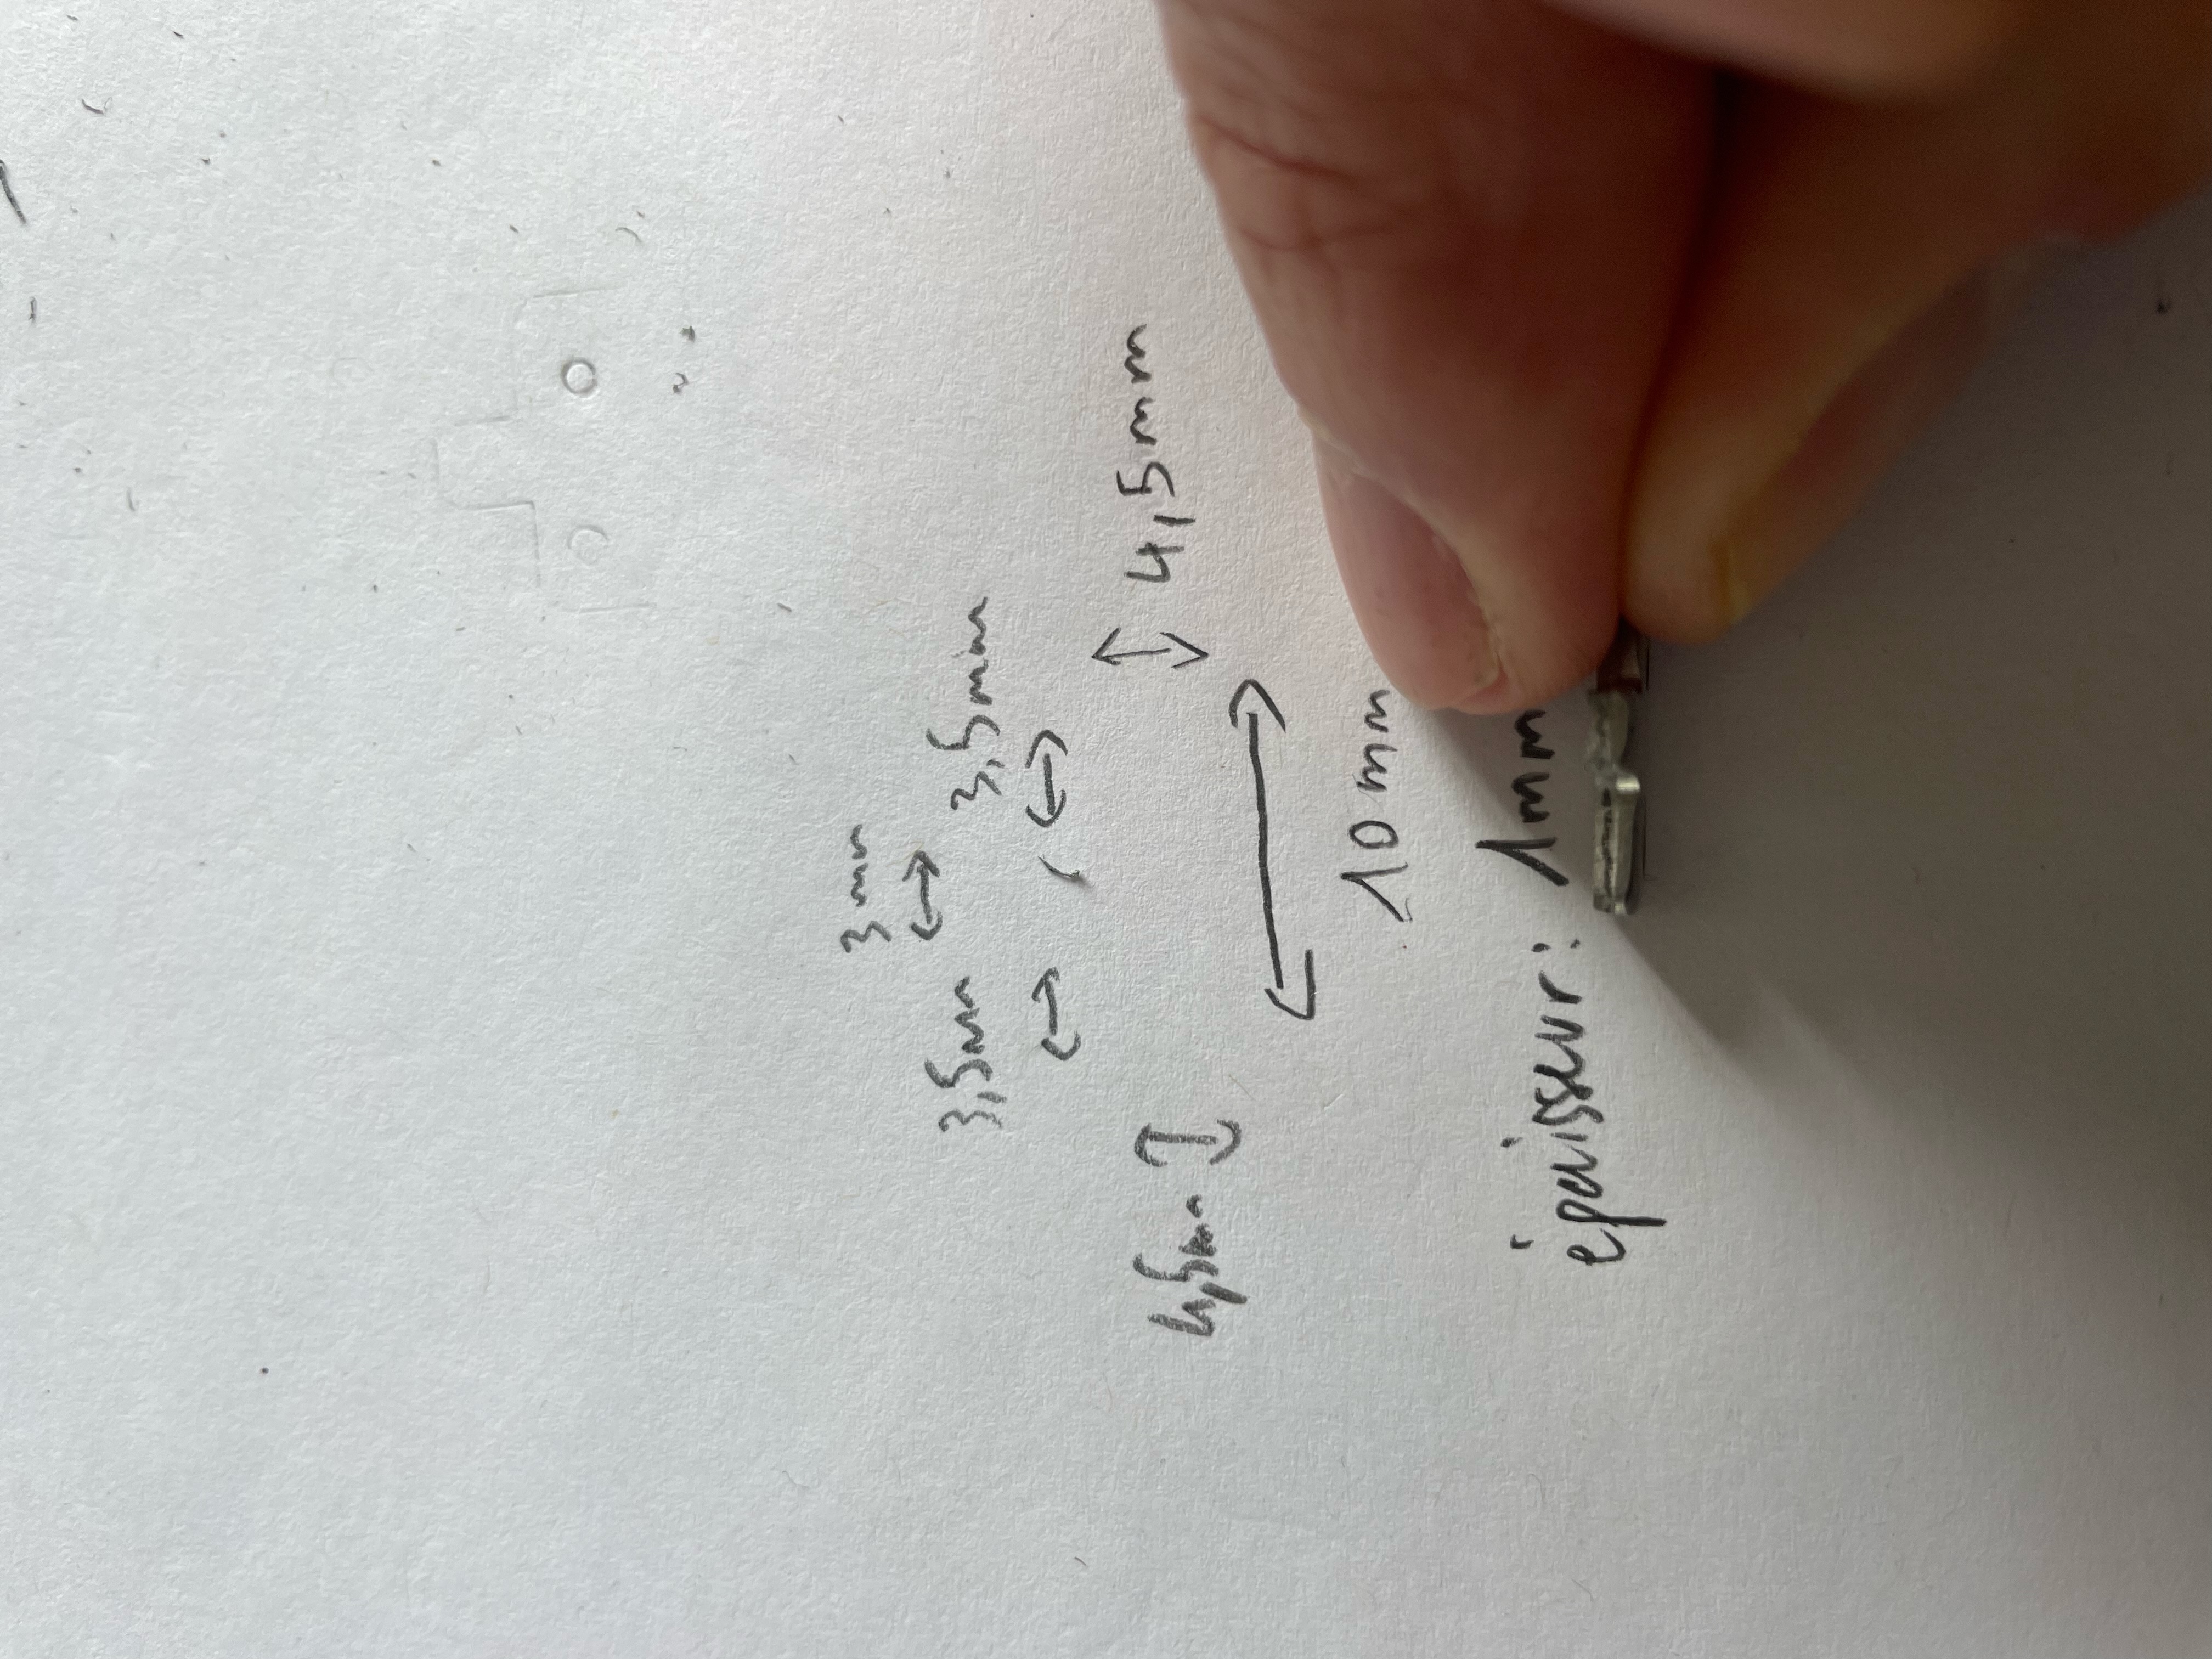 3 mm
3,5mm 3,5mm
4,5mm 4,5mm
10 mm
épaisseur: 1mm